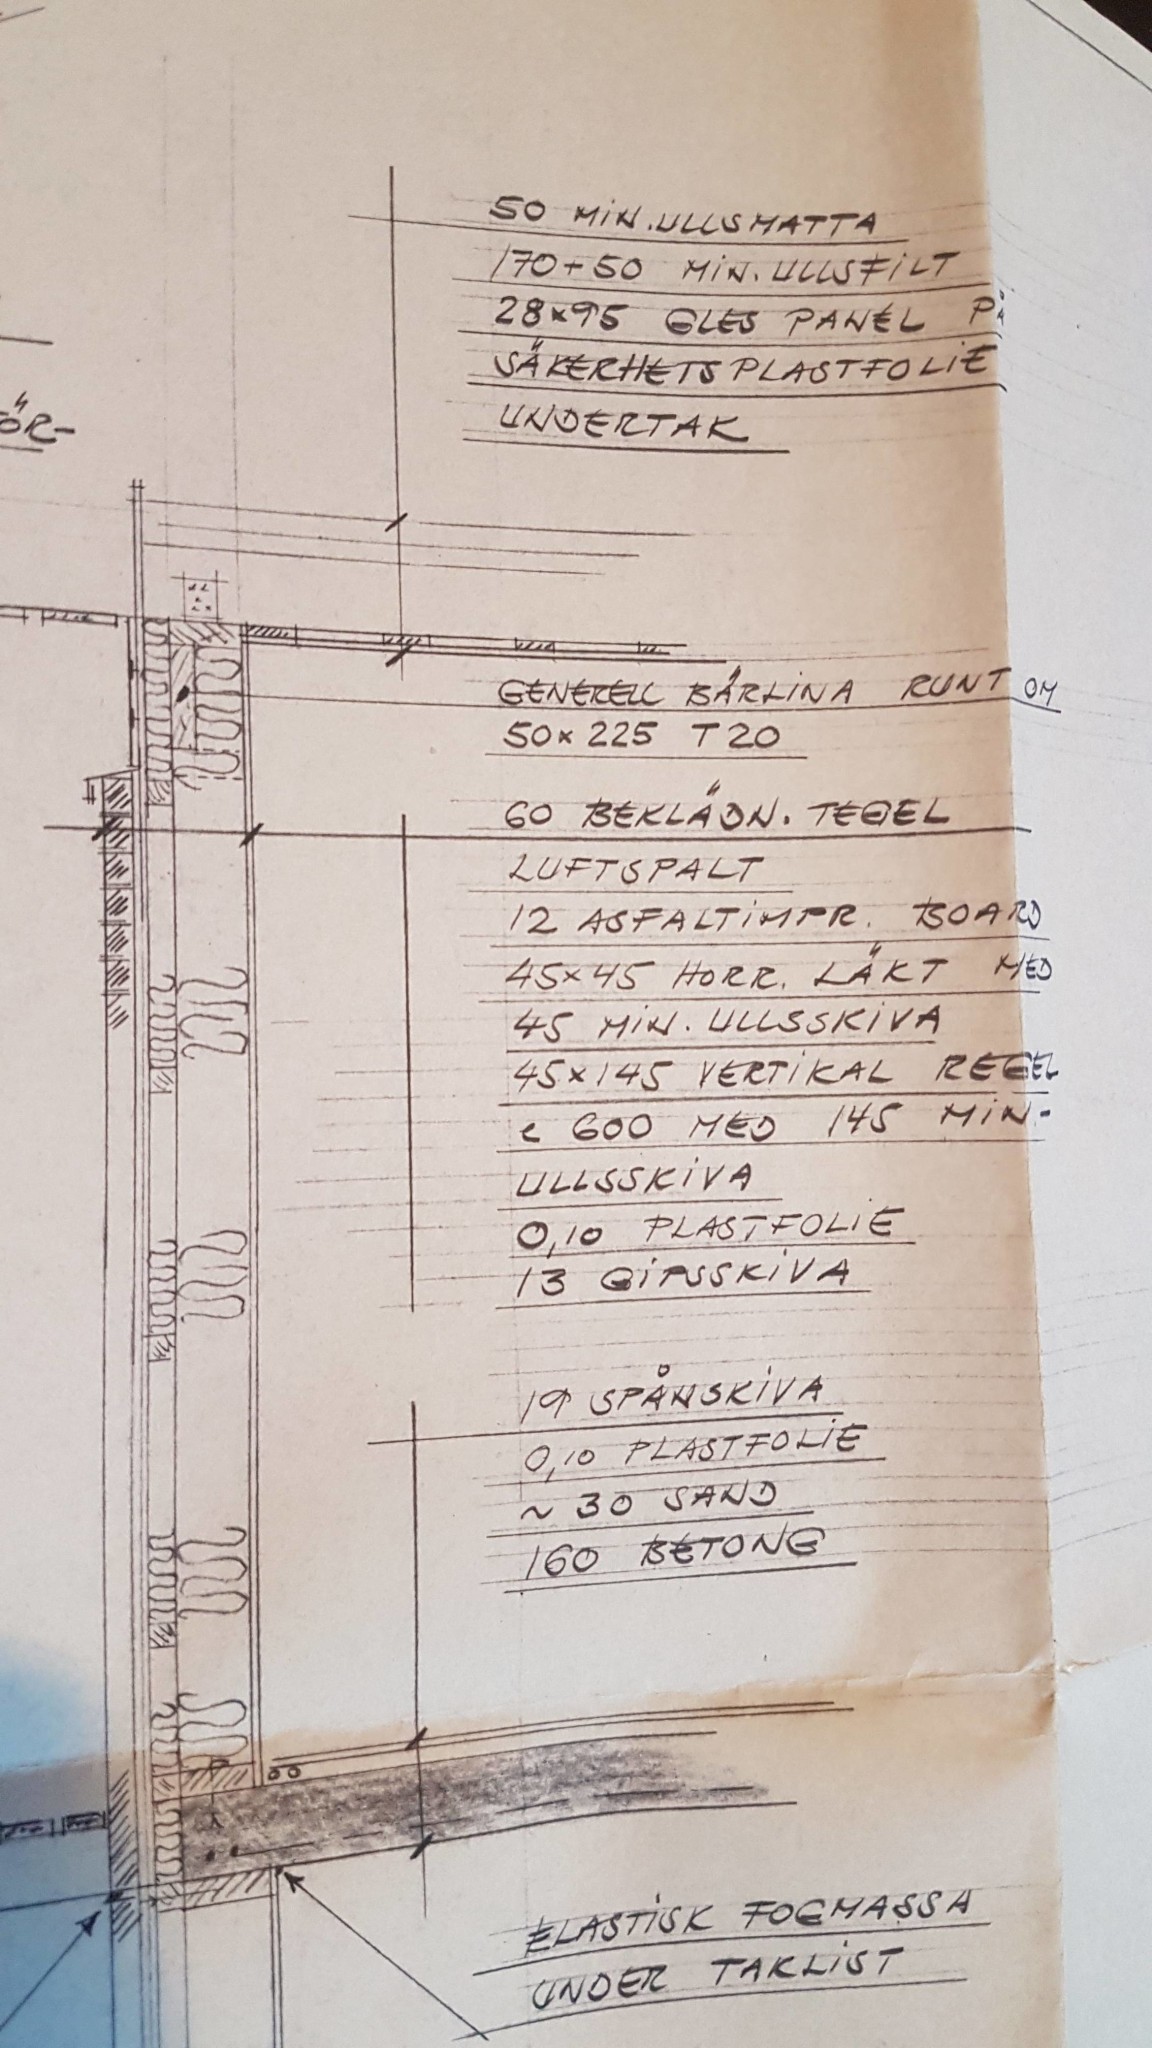 50 MIN.ULLSMATTA
170+50 MIN.ULLSFILT
28×95 GLES PANEL PÅ
SÄKERHETSPLASTFOLIE
UNDERTAK
ÖR-
GENERELL BÄRLINA RUNT OM
50×225 T20
60 BEKLÄDN. TEGEL
LUFTSPALT
12 ASFALTIMPR. BOARD
45×45 HORR. LÄKT MED
45 MIN. ULLSSKIVA
45×145 VERTIKAL REGEL
c 600 MED 145 MIN-
ULLSSKIVA
0,10 PLASTFOLIE
13 GIPSSKIVA
19 SPÅNSKIVA
0,10 PLASTFOLIE
~ 30 SAND
160 BETONG
ELASTISK FOGMASSA
UNDER TAKLIST